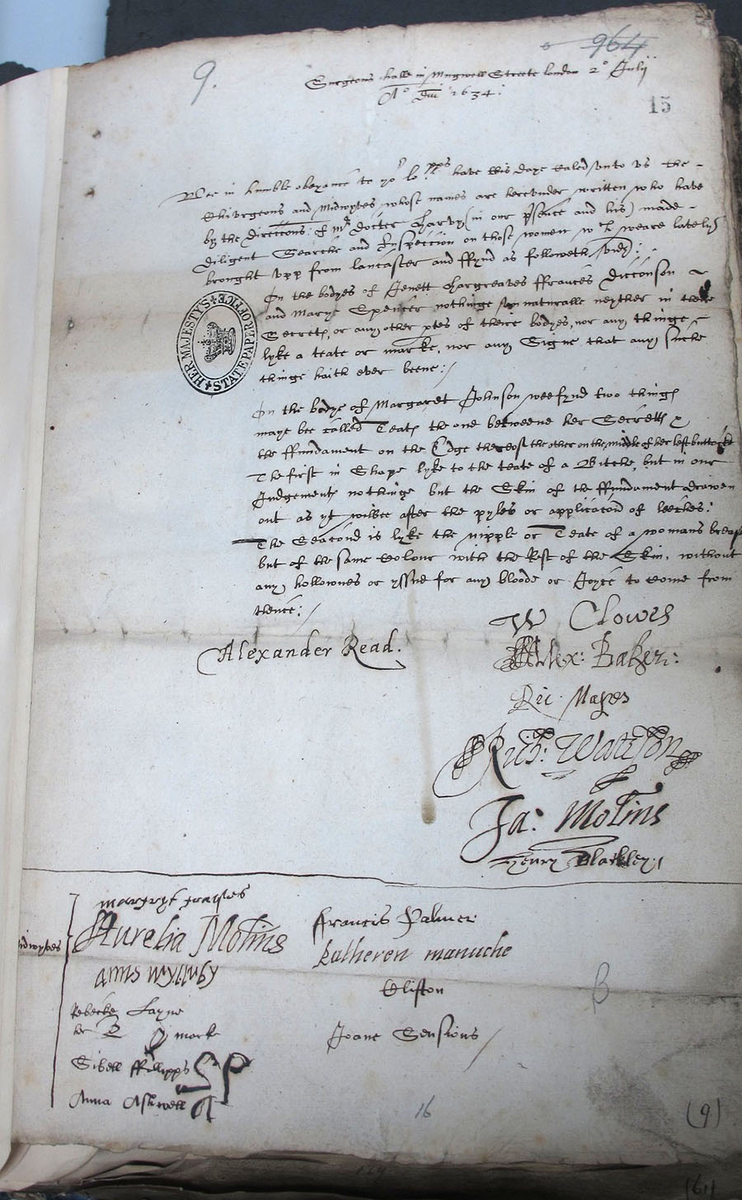 9.
964
Surgeons hall in Mugwell Streete london 2° July
A° Dni 1634:
15
Wee in humble obeyance to yor lo:pps have this daye called unto us the
Chirurgeons and Midwyfes whose names are hereunder written who have
by the direccons of Mr Docter Harvy (in our psence and his) made
diligent Searche and Inspeccion on those women wch weare lately
brought upp from lancaster and ffynd as followeth vidz:
In the bodyes of Jenett Hargreaves ffrances Dicconson
and Marye Spencer nothinge unnaturalle neyther in there
Secrets, or any other ptes of theire bodyes, nor any thinge
lyke a teate or marke, nor any Signe that any suche
thinge haith ever beene:/
In the body of Margaret Johnson wee fynd two things
maye bee called Teats the one betweene her Secretts &
the ffundament on the Edge thereof the other on the middle of her left buttocke
The first in Shape lyke to the teate of a Bitche, but in our
Judgements nothinge but the Skin of the ffundament drawen
out as yt wilbee after the pyles or applicacon of leeches:
The Seacond is lyke the nipple or Teate of a womans breast
but of the same Colour with the Rest of the Skin, without
any hollownes or yssue for any bloode or Joyce to come from
thence:/
HER MAJESTY'S STATE PAPER OFFICE
W Clowes
Alexander Read.
Alex: Baker:
Ric. Mapes
Rich: Watson
Ja: Molins
Henry Blackley:
Midwyfes
Aurelia Molins
Francis Palmer
katheren manuche
Clifton
Rebecke Layne
her R mark
Joane Sensions
Sibell ffellipps SP
Anna Ashwell
16
(9)